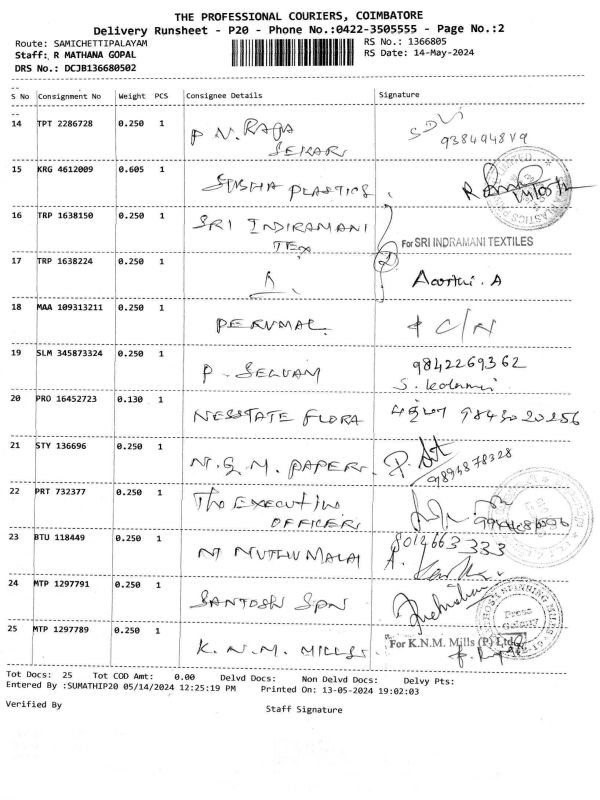 THE PROFESSIONAL COURIERS, COIMBATORE
Delivery Runsheet - P20 - Phone No.:0422-3505555 - Page No.:2
Route: SAMICHETTIPALAYAM
RS No.: 1366805
Staff: R MATHANA GOPAL
RS Date: 14-May-2024
DRS No.: DCJB136680502
S No Consignment No Weight PCS Consignee Details Signature
14 TPT 2286728 0.250 1 P N. RAJA
SEKAR
15 KRG 4612009 0.605 1 PLASTICS
16 TRP 1638150 0.250 1 SRI INDIRAMANI
TEX
For SRI INDRAMANI TEXTILES
17 TRP 1638224 0.250 1 Aarthi. A
18 MAA 109313211 0.250 1 PERUMAL
19 SLM 345873324 0.250 1 P. SELVAM 9842269362
20 PRO 16452723 0.130 1 NESSTATE FLORA 9843020256
21 STY 136696 0.250 1 N.G.M. PAPER 9894878328
22 PRT 732377 0.250 1 The EXECUTIVE
OFFICER
23 BTU 118449 0.250 1 NT MUTHUMALAI 8012663333
24 MTP 1297791 0.250 1 SANTOSH SPN
25 MTP 1297789 0.250 1 K.N.M. MILLS
For K.N.M. Mills (P) Ltd
Tot Docs: 25 Tot COD Amt: 0.00 Delvd Docs: Non Delvd Docs: Delvy Pts:
Entered By :SUMATHIP20 05/14/2024 12:25:19 PM Printed On: 13-05-2024 19:02:03
Verified By
Staff Signature